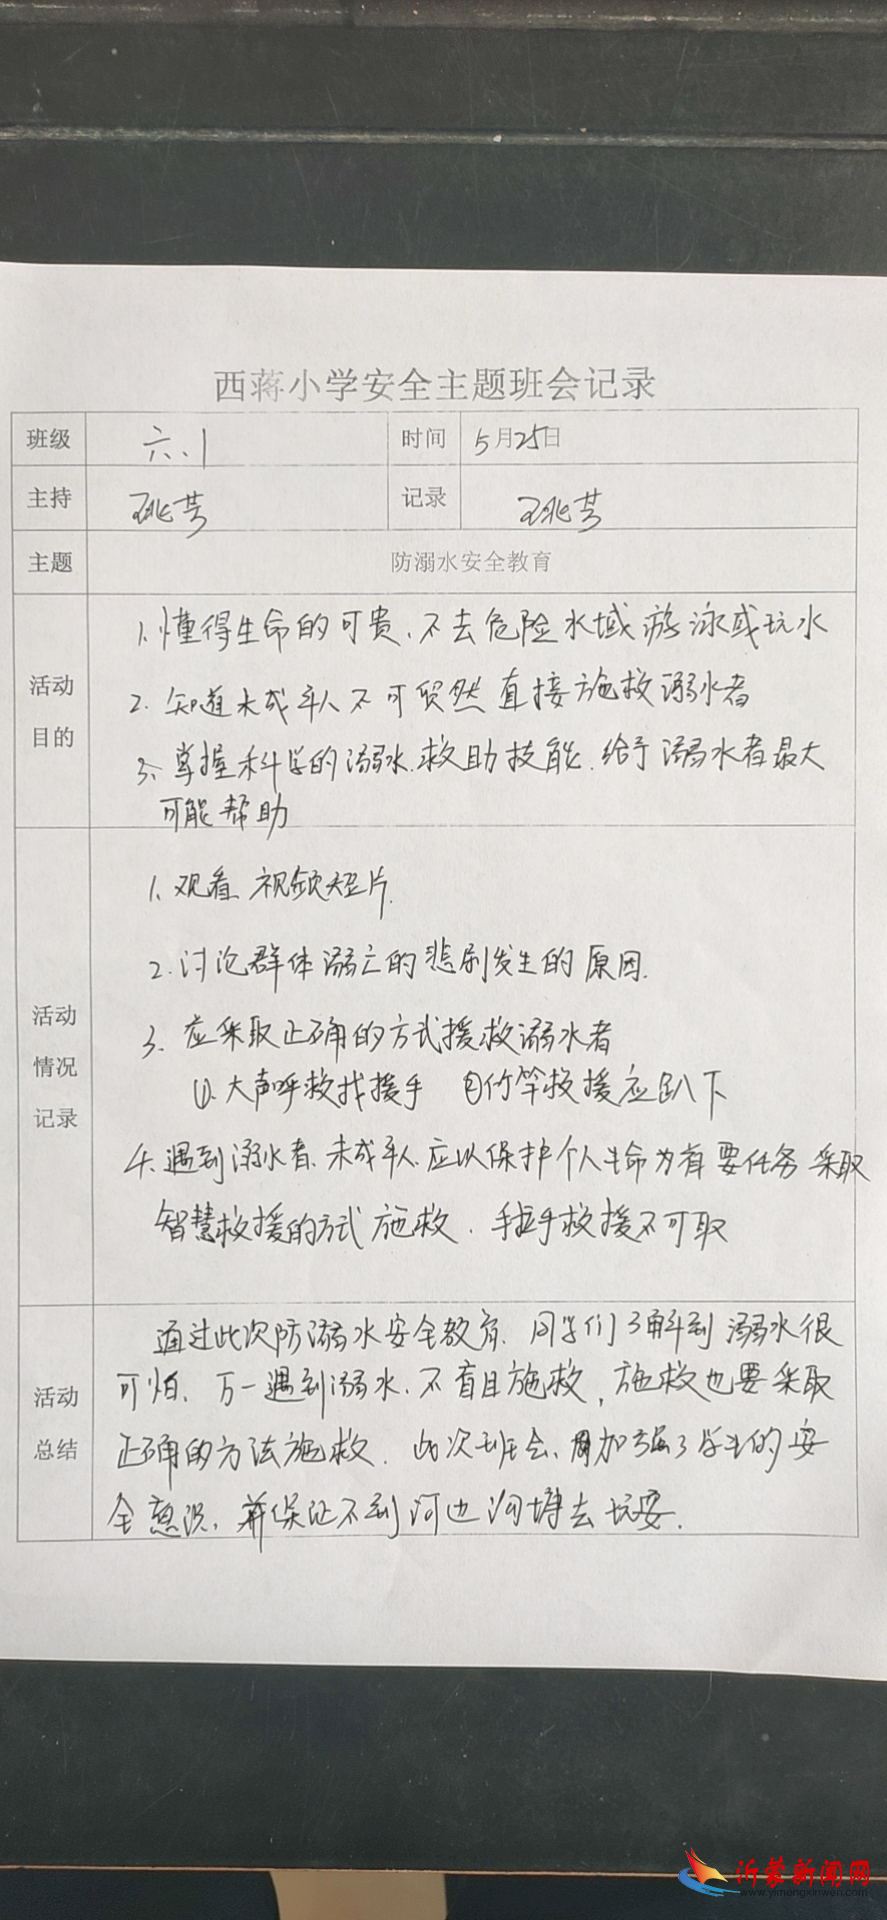 西蒋小学安全主题班会记录
班级 六.1 时间 5月25日
主持 记录
主题 防溺水安全教育
活动目的
1.懂得生命的可贵、不去危险水域游泳或玩水
2.知道未成年人不可贸然直接施救溺水者
3、掌握科学的溺水救助技能.给予溺水者最大
可能帮助
活动情况记录
1.观看视频短片.
2.讨论群体溺亡的悲剧发生的原因.
3、应采取正确的方式援救溺水者
①.大声呼救找援手 ②竹竿救援应趴下
4.遇到溺水者.未成年人.应以保护个人生命为首要任务 采取
智慧救援的方式施救.手拉手救援不可取
活动总结
通过此次防溺水安全教育.同学们了解到溺水很
可怕.万一遇到溺水.不盲目施救,施救也要采取
正确的方法施救.此次班会、加强了学生的安
全意识,并保证不到河边沟塘去玩耍.
沂蒙新闻网
www.yimengxinwen.com